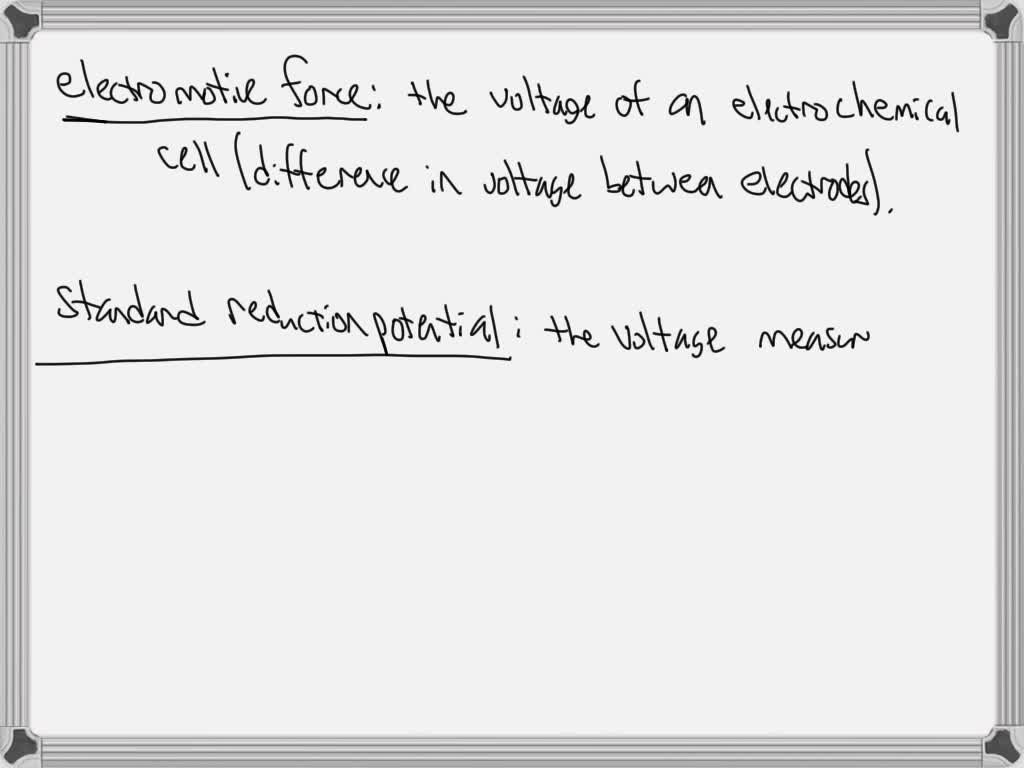 electromotive force: the voltage of an electrochemical
cell (difference in voltage between electrodes).
standard reduction potential: the voltage measur